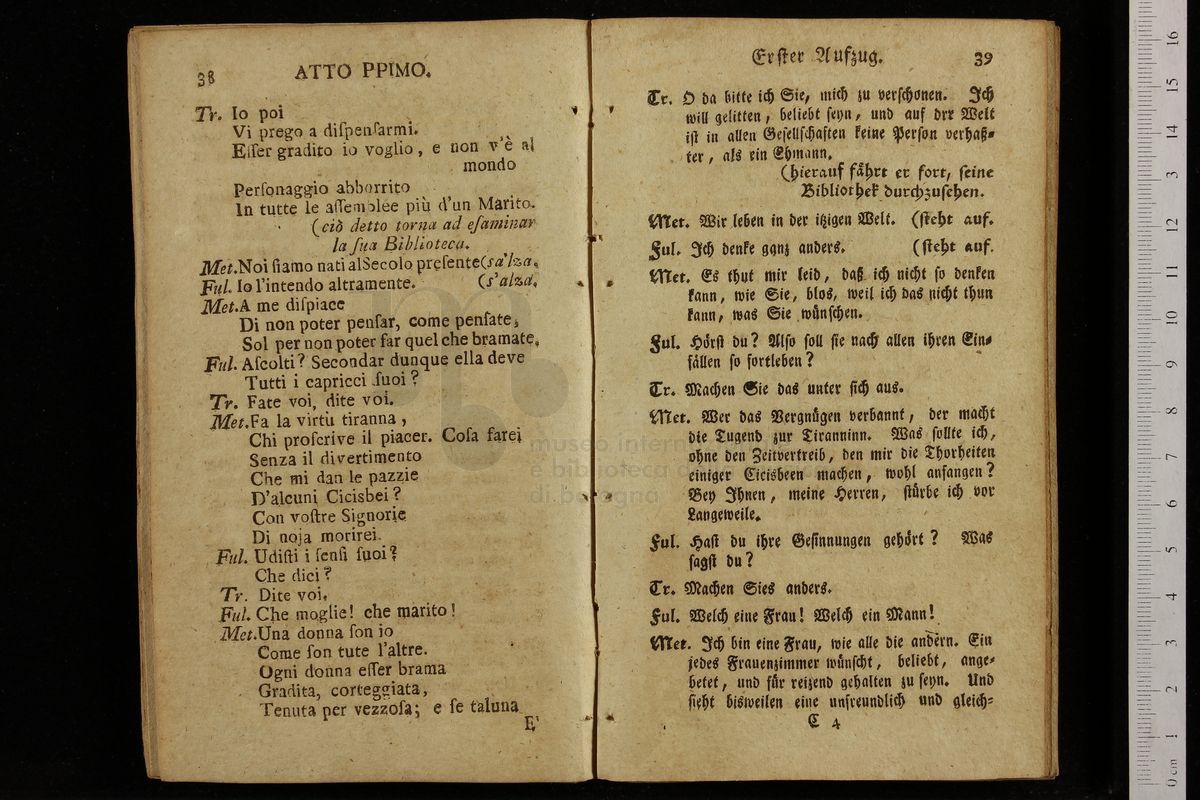 38 ATTO PPIMO.
Tr. Io poi
Vi prego a diſpenſarmi.
Eſſer gradito io voglio, e non v'è al
mondo
Perſonaggio abborrito
In tutte le aſſemblee più d'un Marito.
(ciò detto torna ad eſaminar
la ſua Biblioteca.
Met.Noi ſiamo nati alSecolo preſente(sa'lza.
Ful. Io l'intendo altramente. (s'alza.
Met.A me diſpiace
Di non poter penſar, come penſate,
Sol per non poter far quel che bramate.
Ful. Aſcolti? Secondar dunque ella deve
Tutti i capricci ſuoi?
Tr. Fate voi, dite voi.
Met.Fa la virtù tiranna,
Chi proſcrive il piacer. Coſa farei
Senza il divertimento
Che mi dan le pazzie
D'alcuni Cicisbei?
Con voſtre Signorie
Di noja morirei.
Ful. Udiſti i ſenſi ſuoi?
Che dici?
Tr. Dite voi.
Ful. Che moglie! che marito!
Met.Una donna ſon io
Come ſon tute l'altre.
Ogni donna eſſer brama
Gradita, corteggiata,
Tenuta per vezzoſa; e ſe taluna
E'
Erſter Aufzug. 39
Tr. O da bitte ich Sie, mich zu verſchonen. Ich
will gelitten, beliebt ſeyn, und auf der Welt
iſt in allen Geſellſchaften keine Perſon verhaß-
ter, als ein Ehmann.
(hierauf fährt er fort, ſeine
Bibliothek durchzuſehen.
Met. Wir leben in der itzigen Welt. (ſteht auf.
Ful. Ich denke ganz anders. (ſteht auf.
Met. Es thut mir leid, daß ich nicht ſo denken
kann, wie Sie, blos, weil ich das nicht thun
kann, was Sie wünſchen.
Ful. Hörſt du? Alſo ſoll ſie nach allen ihren Ein-
fällen ſo fortleben?
Tr. Machen Sie das unter ſich aus.
Met. Wer das Vergnügen verbannt, der macht
die Tugend zur Tiranninn. Was ſollte ich,
ohne den Zeitvertreib, den mir die Thorheiten
einiger Cicisbeen machen, wohl anfangen?
Bey Ihnen, meine Herren, ſtürbe ich vor
Langeweile.
Ful. Haſt du ihre Geſinnungen gehört? Was
ſagſt du?
Tr. Machen Sies anders.
Ful. Welch eine Frau! Welch ein Mann!
Met. Ich bin eine Frau, wie alle die andern. Ein
jedes Frauenzimmer wünſcht, beliebt, ange-
betet, und für reizend gehalten zu ſeyn. Und
ſieht bisweilen eine unfreundlich und gleich-
C 4